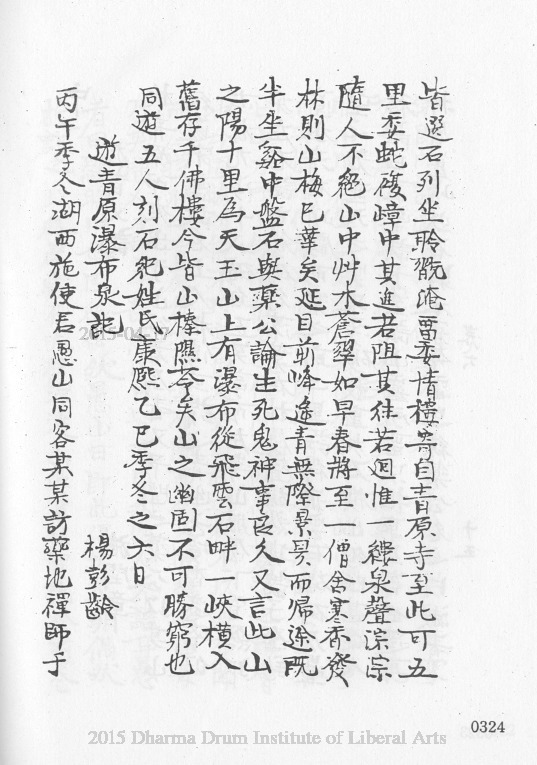 皆選石列坐聆翫淹留委情禮寄自青原寺至此可五
里委蛇複嶂中其進若阻其往若迴惟一線泉聲淙淙
隨人不絕山中艸木蒼翠如早春將至一僧舍寒香發
林則山梅已華矣延目前峰遙青無際景昃而歸途既
半坐谿中盤石與藥公論生死鬼神事良久又言此山
之陽十里為天玉山上有瀑布從飛雲石畔一峽橫入
舊存千佛樓今皆山榛隰苓矣山之幽固不可勝窮也
同遊五人刻石紀姓氏康熙乙巳季冬之六日
遊青原瀑布泉記
楊彭齡
丙午季冬湖西施使君愚山同客某某訪藥地禪師于
0324
2015 Dharma Drum Institute of Liberal Arts